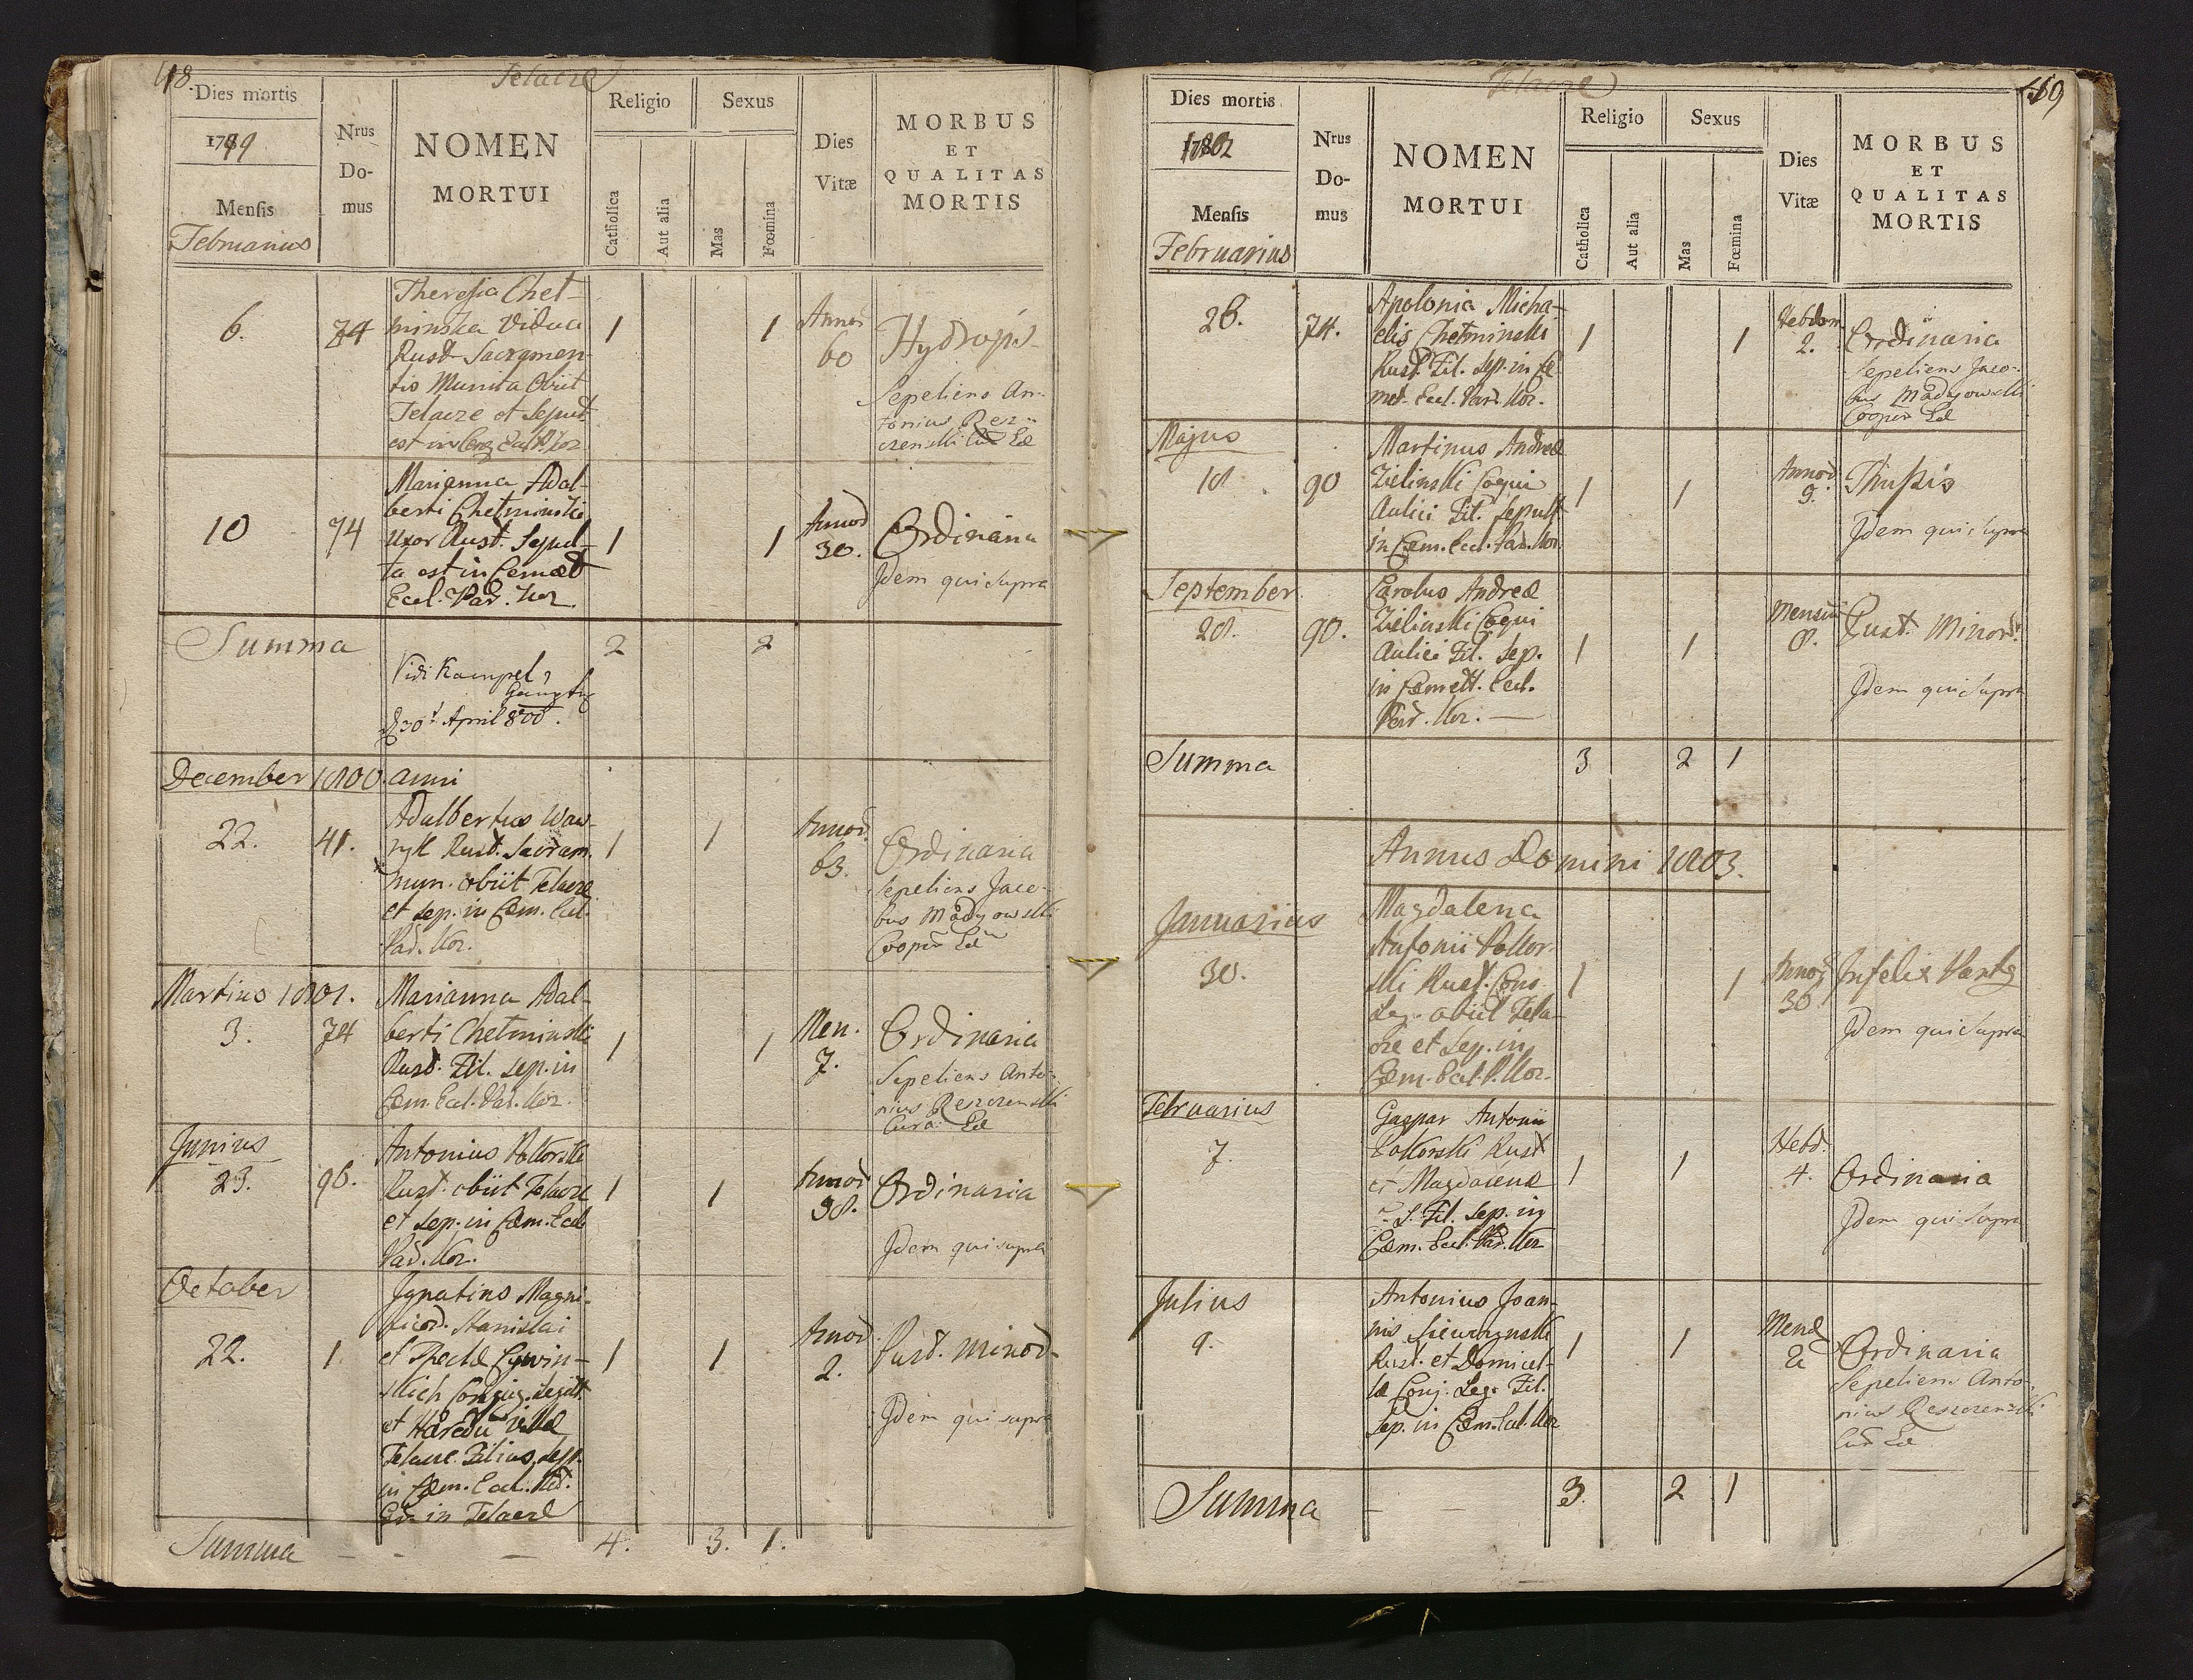 118.
Telacze
Dies mortis
1799
Mensis
Februarius
Nrus
Do-
mus
NOMEN
MORTUI
Religio
Catholica
Aut alia
Sexus
Mas
Fœmina
Dies
Vitæ
MORBUS
ET
QUALITAS
MORTIS
6.
74
Theresia Chet-
minska Vidua
Rust. Sacramen-
tis Munita Obiit
Telacze et Sepult.
est in
1
1
Annor
60
Hydropis
Sepeliens An-
tonius Resz-
czenski Cur
10
74
Marianna Adal-
berti Chetminski
Uxor Rust. Sepul-
ta est in Cemæt
Eccl. Par. Kor.
1
1
Annor
30.
Ordinaria
Idem qui supra
Summa
2
2
Vidi Kampel
30t April 800.
December 1800. anni
22.
41.
Adalbertus Waw-
ryk Rust. Sacram.
mun. obiit Telacze
et sep. in Cæm. Eccl.
Par. Kor.
1
1
Annor
63.
Ordinaria
Sepeliens Jaco-
bus Madyowski
Cooper
Martius 1801.
3.
74
Marianna Adal-
berti Chetminski
Rust. Fil. sep. in
Cæm. Eccl. Par. Kor.
1
1
Men.
7.
Ordinaria
Sepeliens Anto-
nius Reszczenski
Cura.
Junius
23.
96.
Antonius Pokorski
Rust. obiit Telacze
et sep. in Cæm. Eccl.
Par. Kor.
1
1
Annor
38.
Ordinaria
Idem qui supra
October
22.
1.
Ignatius Magni-
ficor. Stanislai
et Theclæ Cywin-
skich Conjug. Legitt.
et Hæredū villæ
Telacze Filius, sep.
in Cæm. Eccl.
in Telacze
1
1
Annor.
2.
Pust. minor.
Idem qui supra
Summa
4.
3.
1.
119
Telacze
Dies mortis
1802
Mensis
Februarius
Nrus
Do-
mus
NOMEN
MORTUI
Religio
Catholica
Aut alia
Sexus
Mas
Fœmina
Dies
Vitæ
MORBUS
ET
QUALITAS
MORTIS
26.
74.
Apolonia Micha-
elis Chetminski
Rust. Fil. Sep. in Ce-
met. Eccl. Par. Kor.
1
1
Hebdom.
2.
Ordinaria
Sepeliens Jaco-
bus Madyowski
Cooper
Majus
18.
90
Martinus Andreæ
Zielinski Coqui
Aulici Fil. Sepult
in Cæm. Eccl. Par. Kor.
1
1
Annor
9.
Thussis
Idem qui supra
September
28.
90.
Carolus Andreæ
Zielinski Coqui
Aulici Fil. Sep.
in Cæmett. Eccl.
Par. Kor.
1
1
Mensiū
8.
Pust. Minor.
Idem qui supra
Summa
3
2
1
Annus Domini 1803.
Januarius
30.
Magdalena
Antonii Pokor-
ski Rust. Cons.
Leg. obiit Tela-
cze et Sep. in
Cæm. Eccl. P. Kor.
1
1
Annor
30
Infelix Partg
Idem qui supra
Februarius
7.
Gaspar Antonii
Pokorski Rust
et Magdalenæ
Fil. sep. in
Cæm. Eccl. Par. Kor
1
1
Hebd.
4.
Ordinaria
Idem qui supra
Julius
9.
Antonius Joan-
nis
Rust. et Domicel-
læ Conj. Leg. Fil.
Sep. in Cæm. Eccl. Kor
1
1
Mens
2
Ordinaria
Sepeliens Anto-
nius Reszczenski
Cur
Summa
3.
2
1